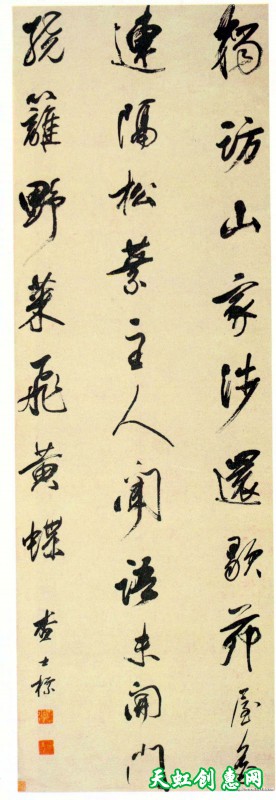 獨訪山家涉還歇茆屋斜
連隔松葉主人聞語未開門
繞籬野菜飛黃蝶
查士標
天虹创惠网